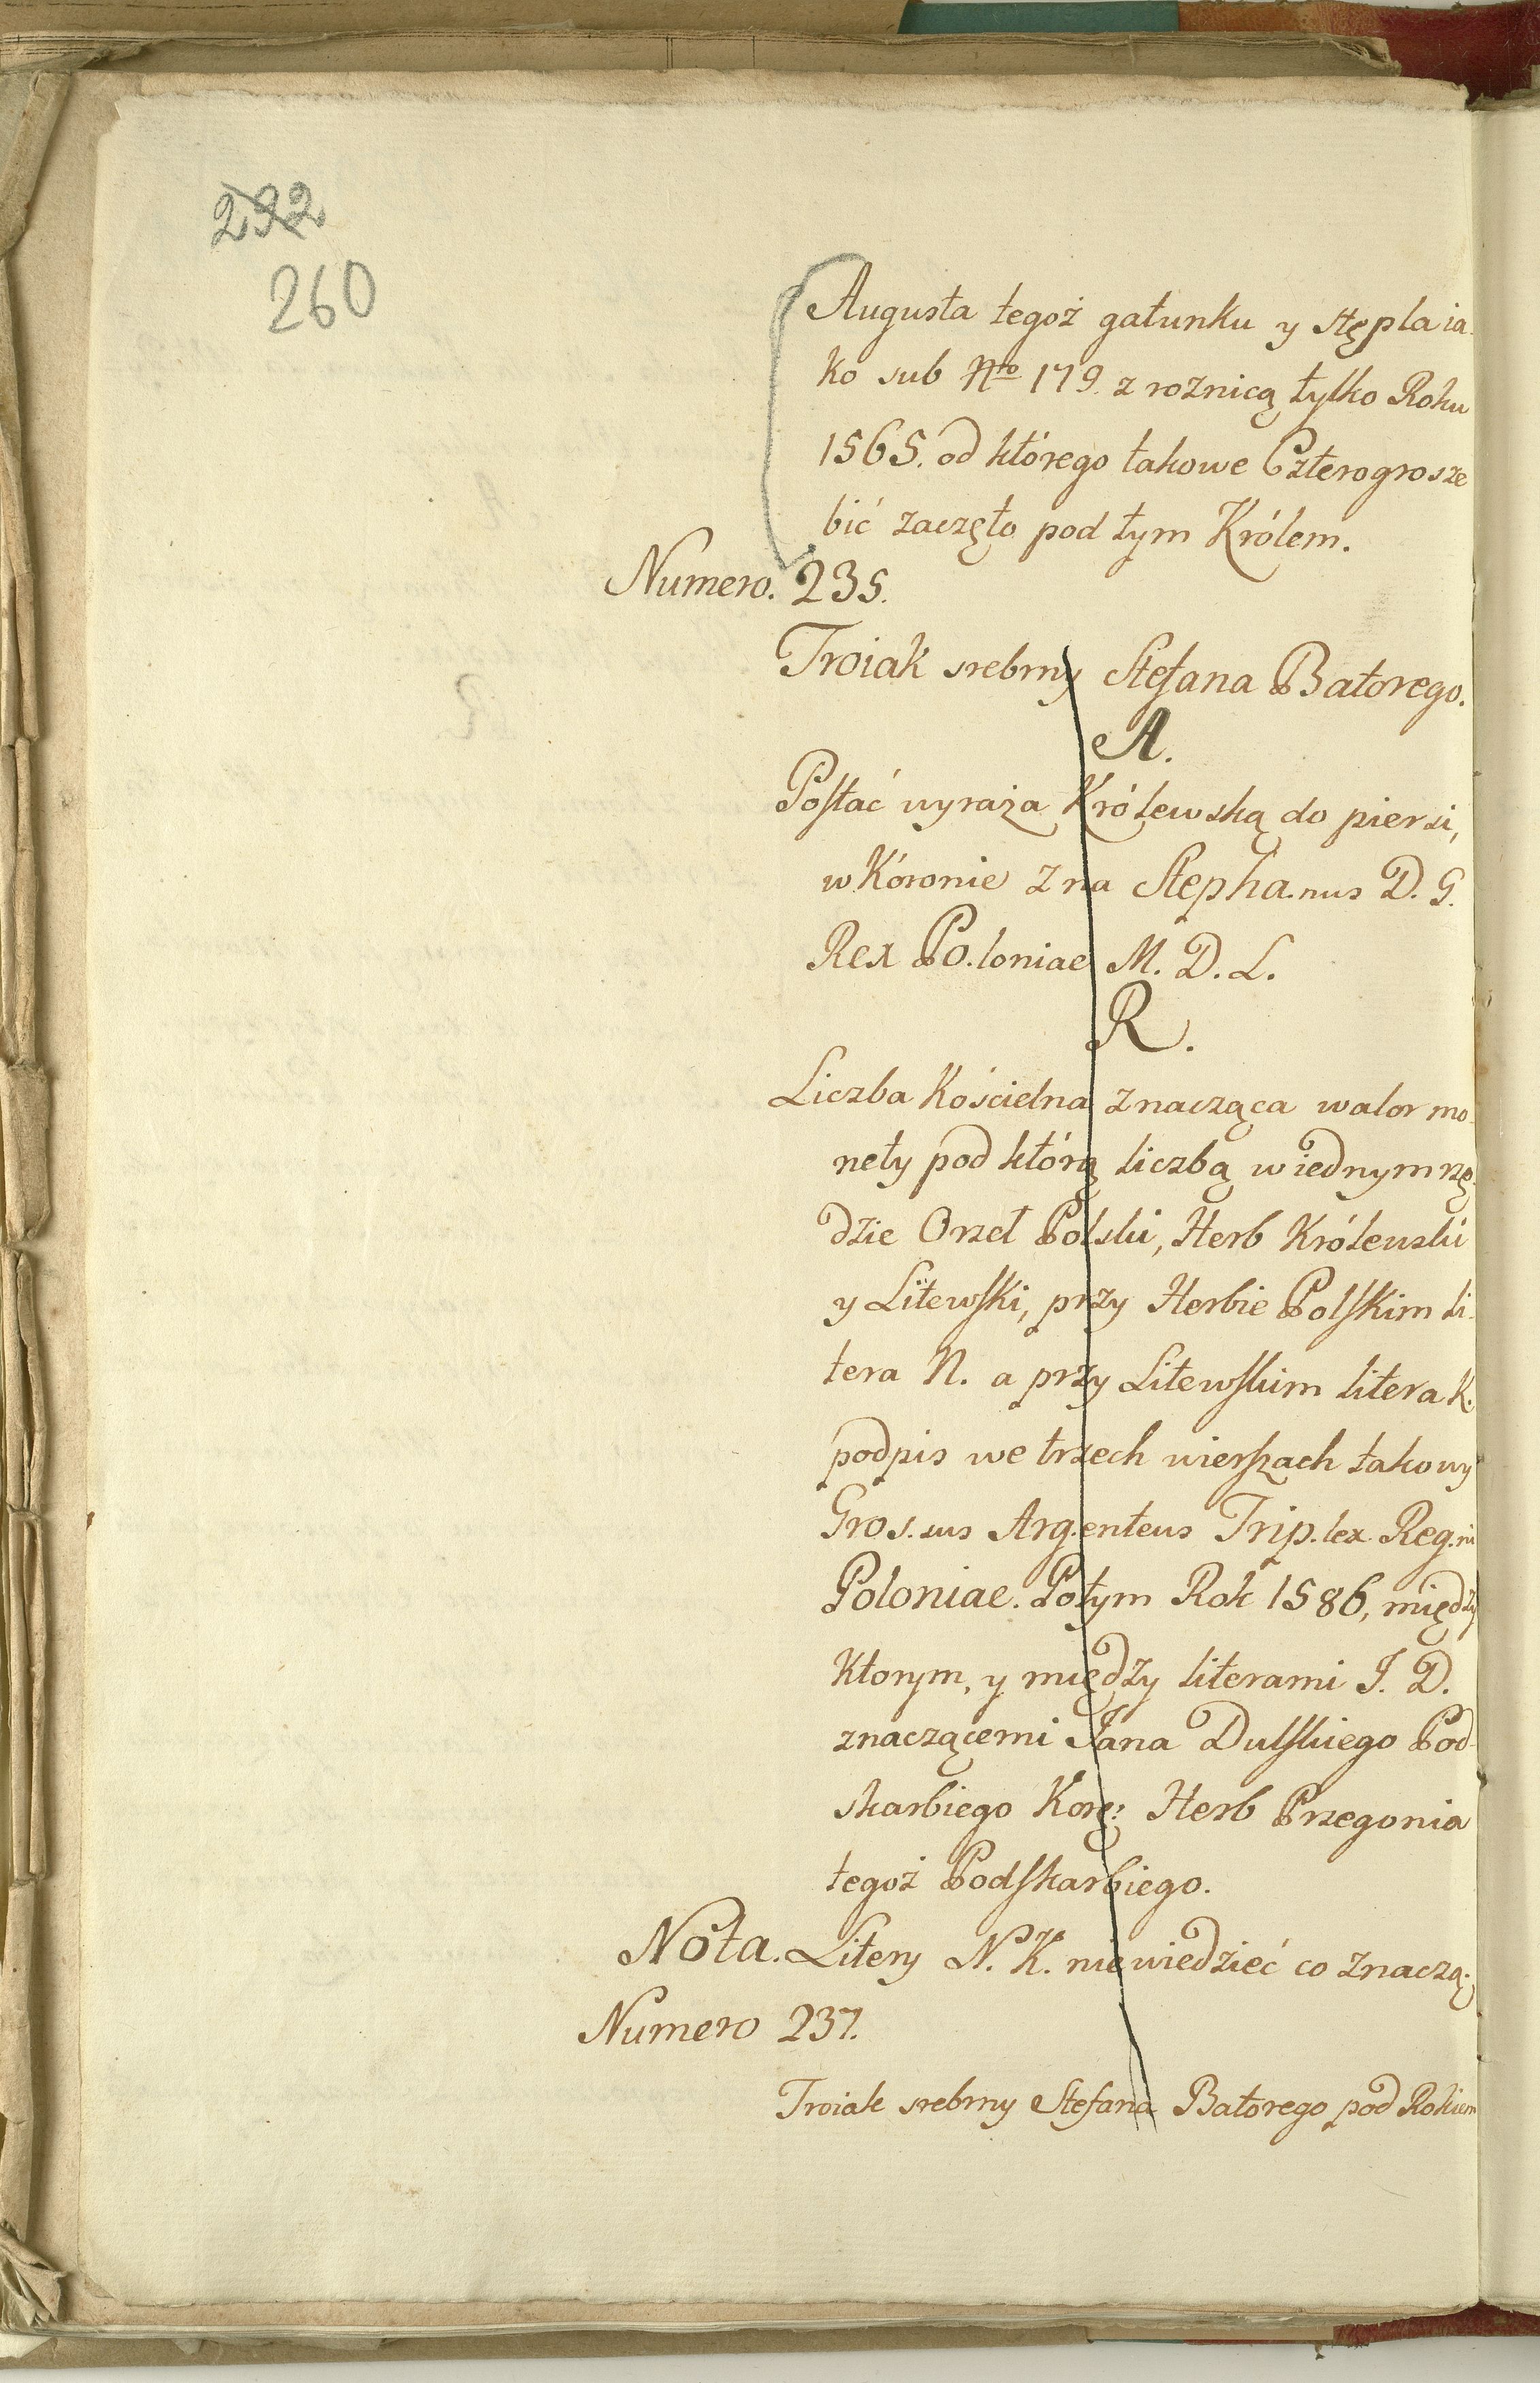 232
260
Augusta tegoż gatunku y stępla ia-
ko sub Nro 179. z roznicą tylko Roku
1565. od którego takowe Czterogrosze
bić zaczęto pod tym Królem.
Numero. 235.
Troiak srebrny Stefana Batorego.
A.
Postać wyraża Królewską do piersi,
w Koronie z na Stepha.nus D. G.
Rex Po.loniae M. D. L.
R.
Liczba Kościelna znacząca walor mo-
nety pod którą liczbą w iednym rzę-
dzie Orzeł Polski, Herb Królewski
y Litewski, przy Herbie Polskim li-
tera N. a przy Litewskim litera K.
podpis we trzech wierszach takowy
Gros.sus Arg.enteus Trip.lex Reg.ni
Poloniae. Potym Rok 1586, między
Ktorym, y między literami J. D.
znaczącemi Jana Dulskiego Pod-
skarbiego Korę: Herb Przegonia
tegoż Podskarbiego.
Nota. Litery N. K. niewiedzieć co znaczą.
Numero 237.
Troiak srebrny Stefana Batorego pod Rokiem